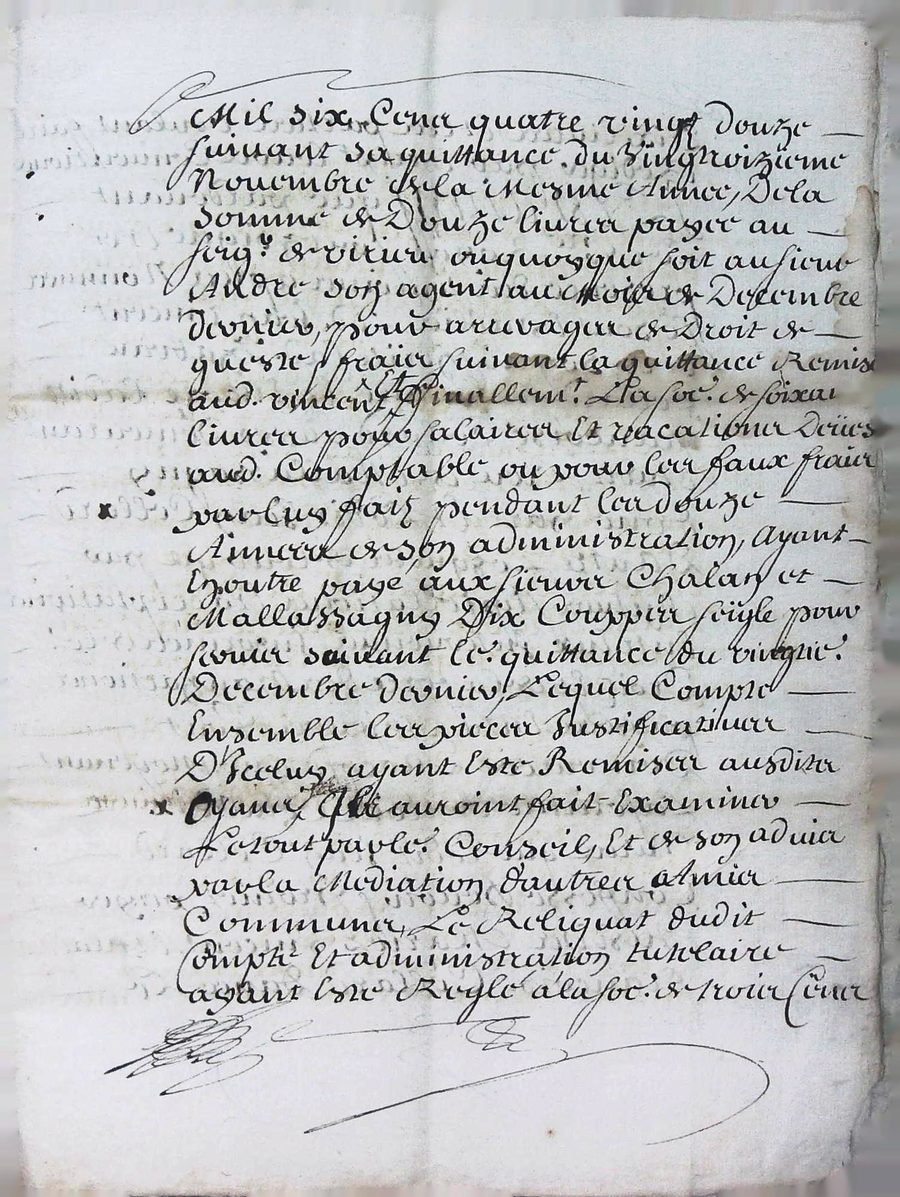 Mil six Cens quatre vingt douze
suivant sa quittance du Vingtroizieme
Novembre de la Mesme Année, De la
Somme de Douze livres payée au
seigr. de virieu ou quoyque soit au sieur
André son agent au Mois de Decembre
dernier, pour arrerages de Droit de
queste fraix suivant la quittance Remise
aud. vincent Et finallemt. La soe. de soixant
livres pour salaires Et vacations Deües
aud. Comptable ou pour les faux fraix
par luy fait pendant les douze
Années de son administration, Ayant
En outre payé aux sieurs Chalan et
Mallassagny Dix Couppes seigle pour
servis suivant le. quittance du vingtie.
Decembre dernier, Lequel Compte
Ensemble les pieces Justificatives
D'Iceluy ayant Esté Remises ausdits
Oyans, auroint fait Examiner
Le tout par le. Conseil, Et de son advis
par la Mediation d'autres Amis
Communs, Le Reliquat dudit
Compte Et administration tutelaire
ayant Esté Reglé a la soe. de trois Cens